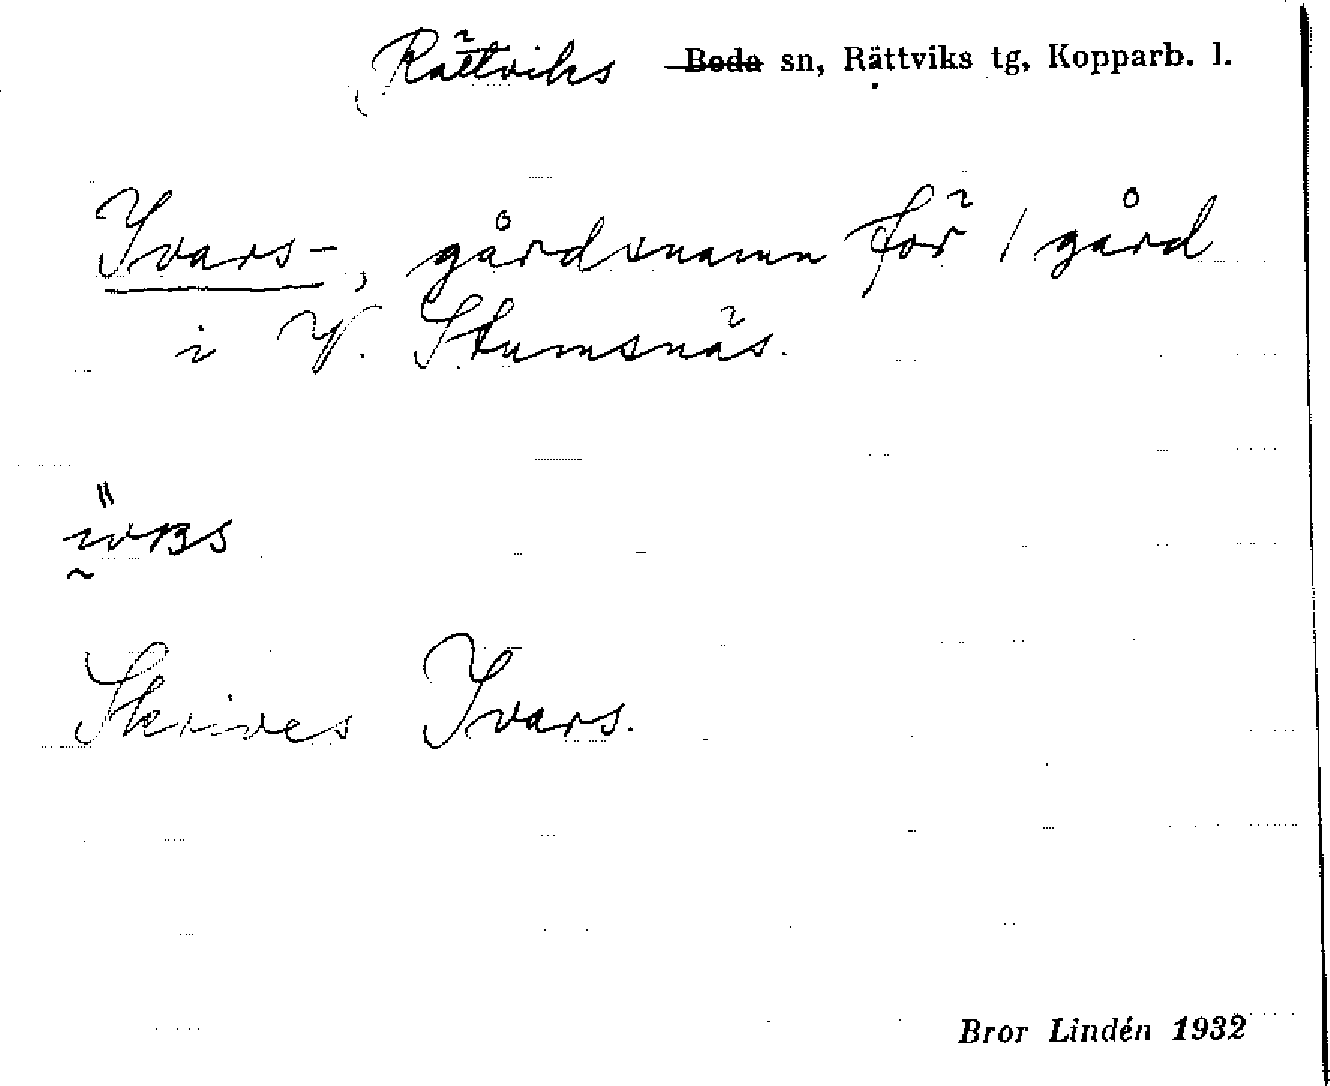 Rättviks Boda sn, Rättviks tg, Kopparb. l.
Ivars-, gårdsnamn för 1 gård
i V. Stumsnäs.
Skrives Ivars.
Bror Lindén 1932